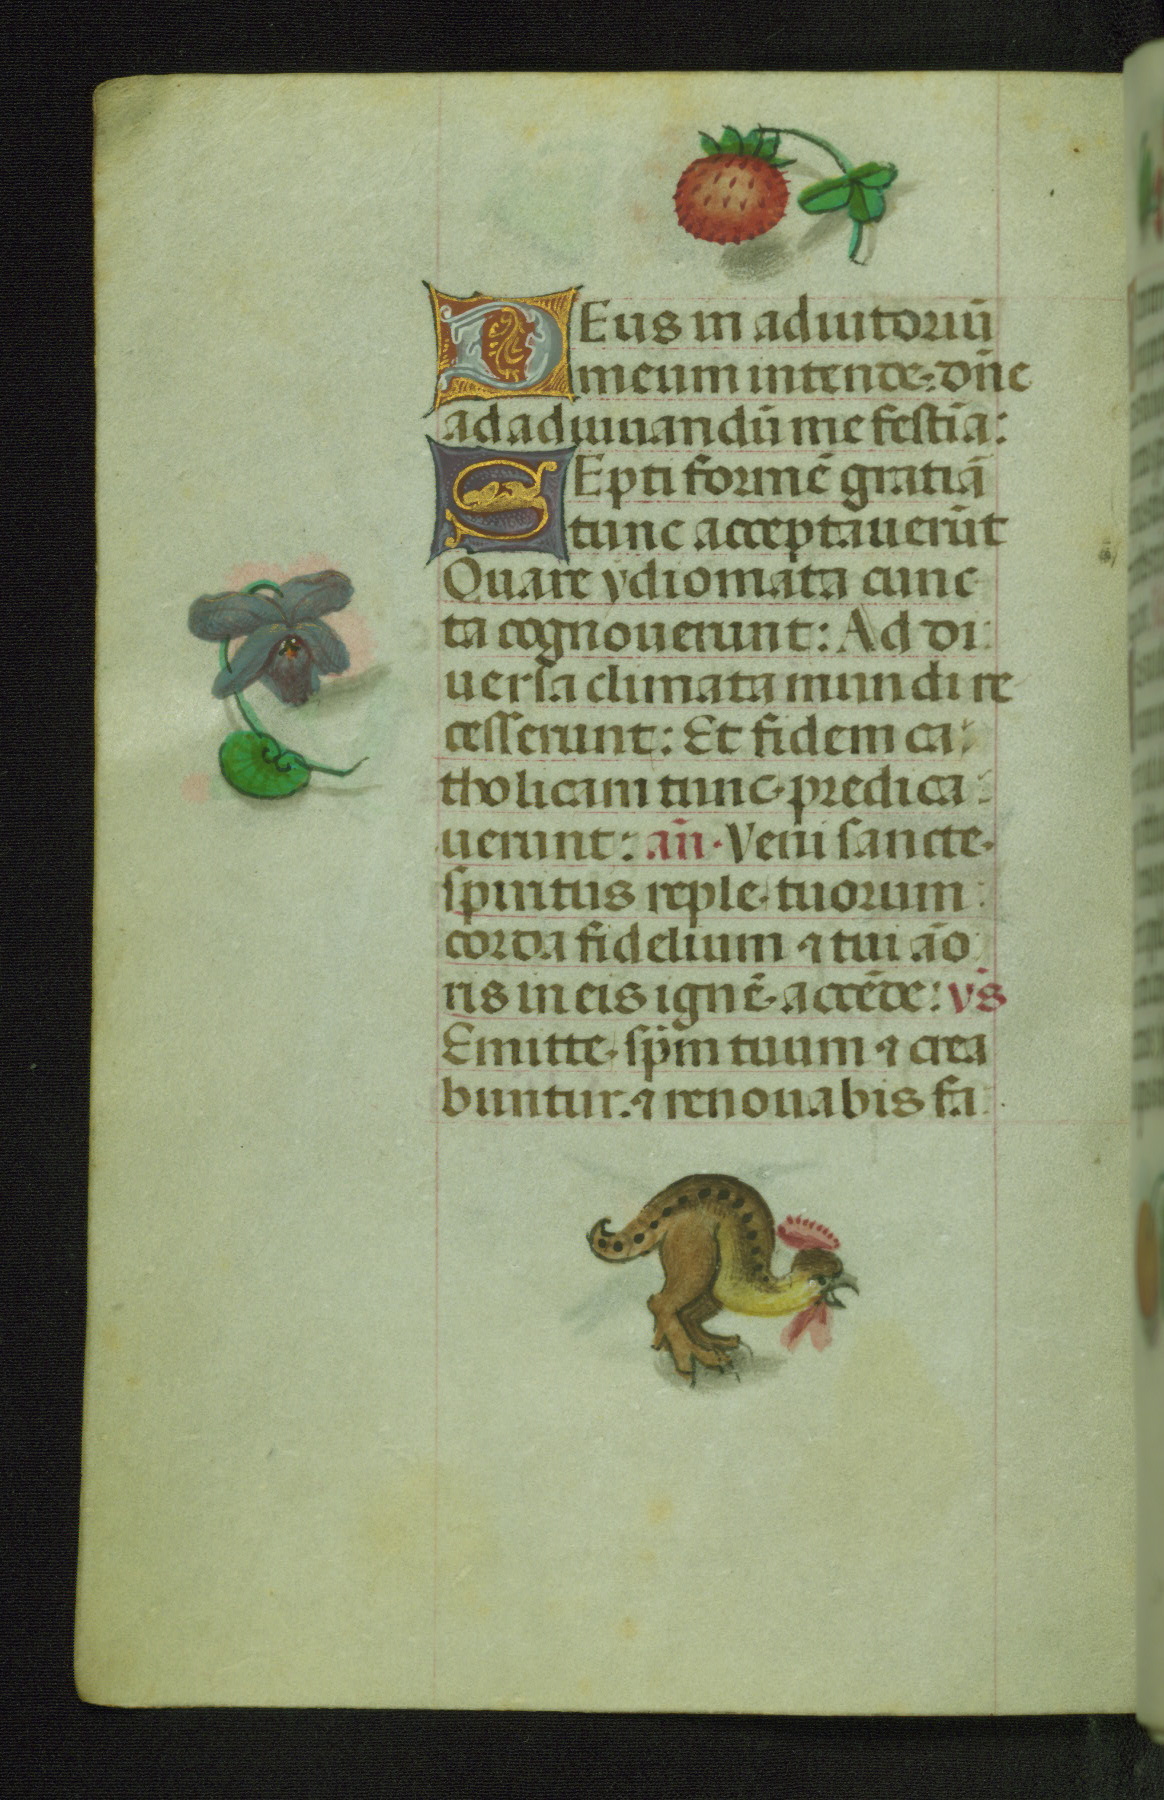 DEus in adiutoriū
meum intende: dn̄e
ad adiuuandū me festīa:
SEpti formē gratiā
tunc acceptauerūt
Quare ydiomata cunc
ta cognouerunt: Ad di
uersa climata mundi re
cesserunt: Et fidem ca
tholicam tunc predica
uerunt: an̄. Veni sancte
spiritus reple tuorum
corda fidelium ⁊ tui āo
ris in eis ignē accēde: vs̄
Emitte sp̄m tuum ⁊ crea
buntur. ⁊ renouabis fa